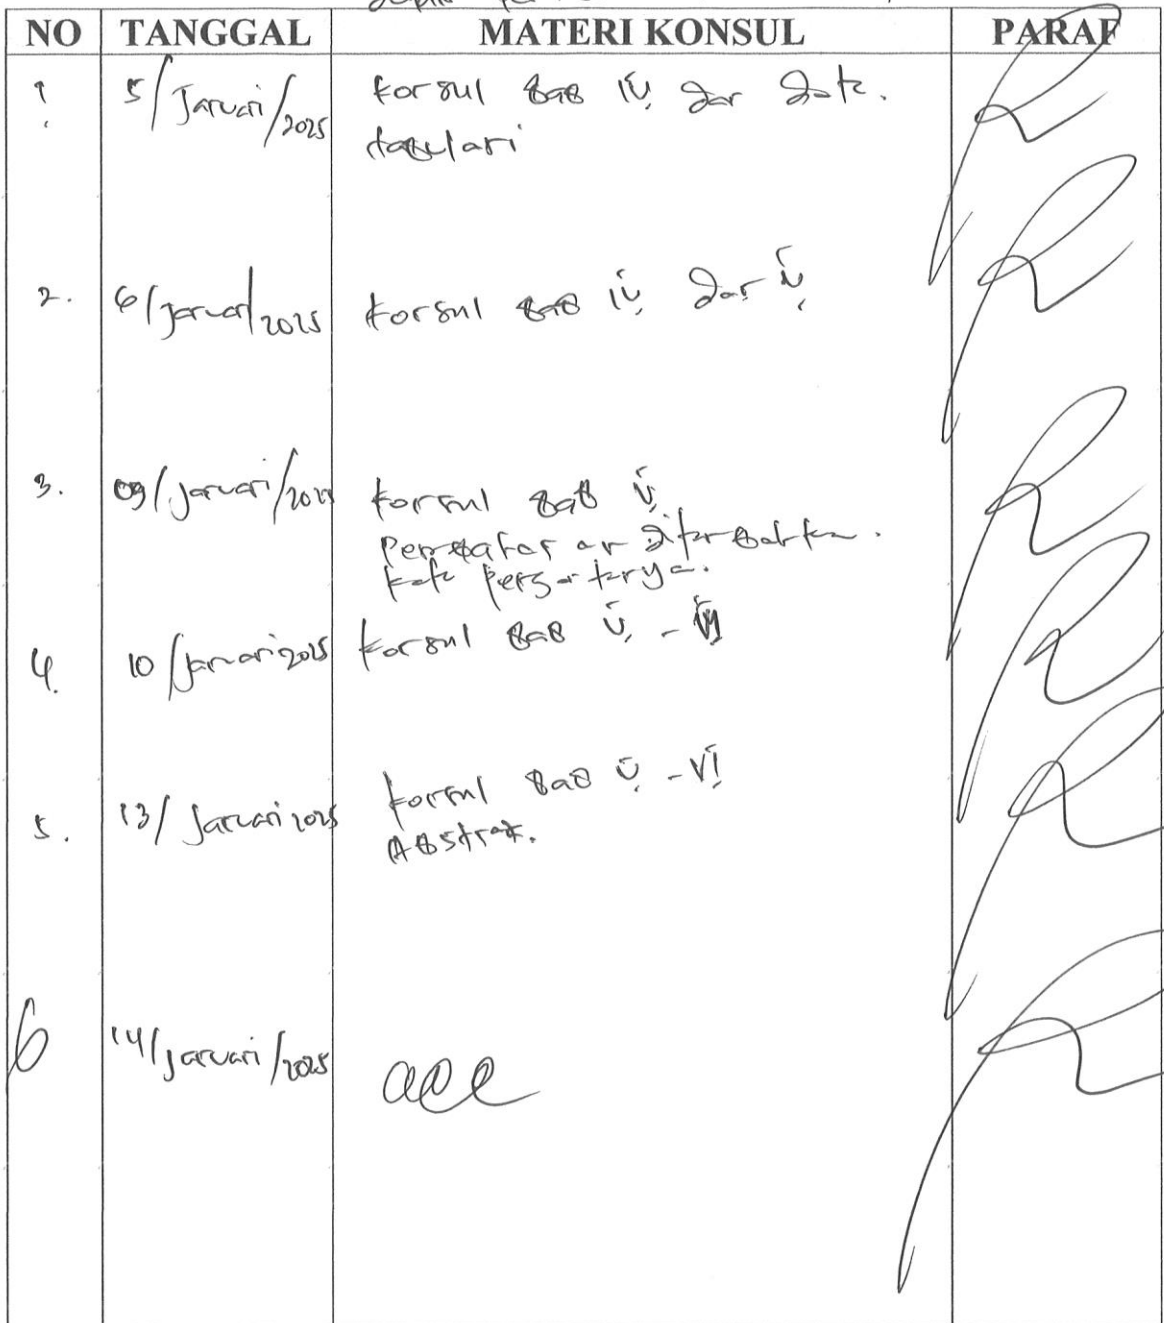 NO TANGGAL MATERI KONSUL PARAF
1. 5/Januari/2025 Konsul BAB IV dan data
tabulasi
2. 6/Januari/2025 Konsul BAB IV dan V
3. 09/Januari/2025 Konsul BAB V
Pembahasan ditambahkan
4. 10/Januari 2025 Konsul BAB V - VI
5. 13/Januari 2025 Konsul BAB V - VI
ABstrak.
6 14/Januari/2025 acc